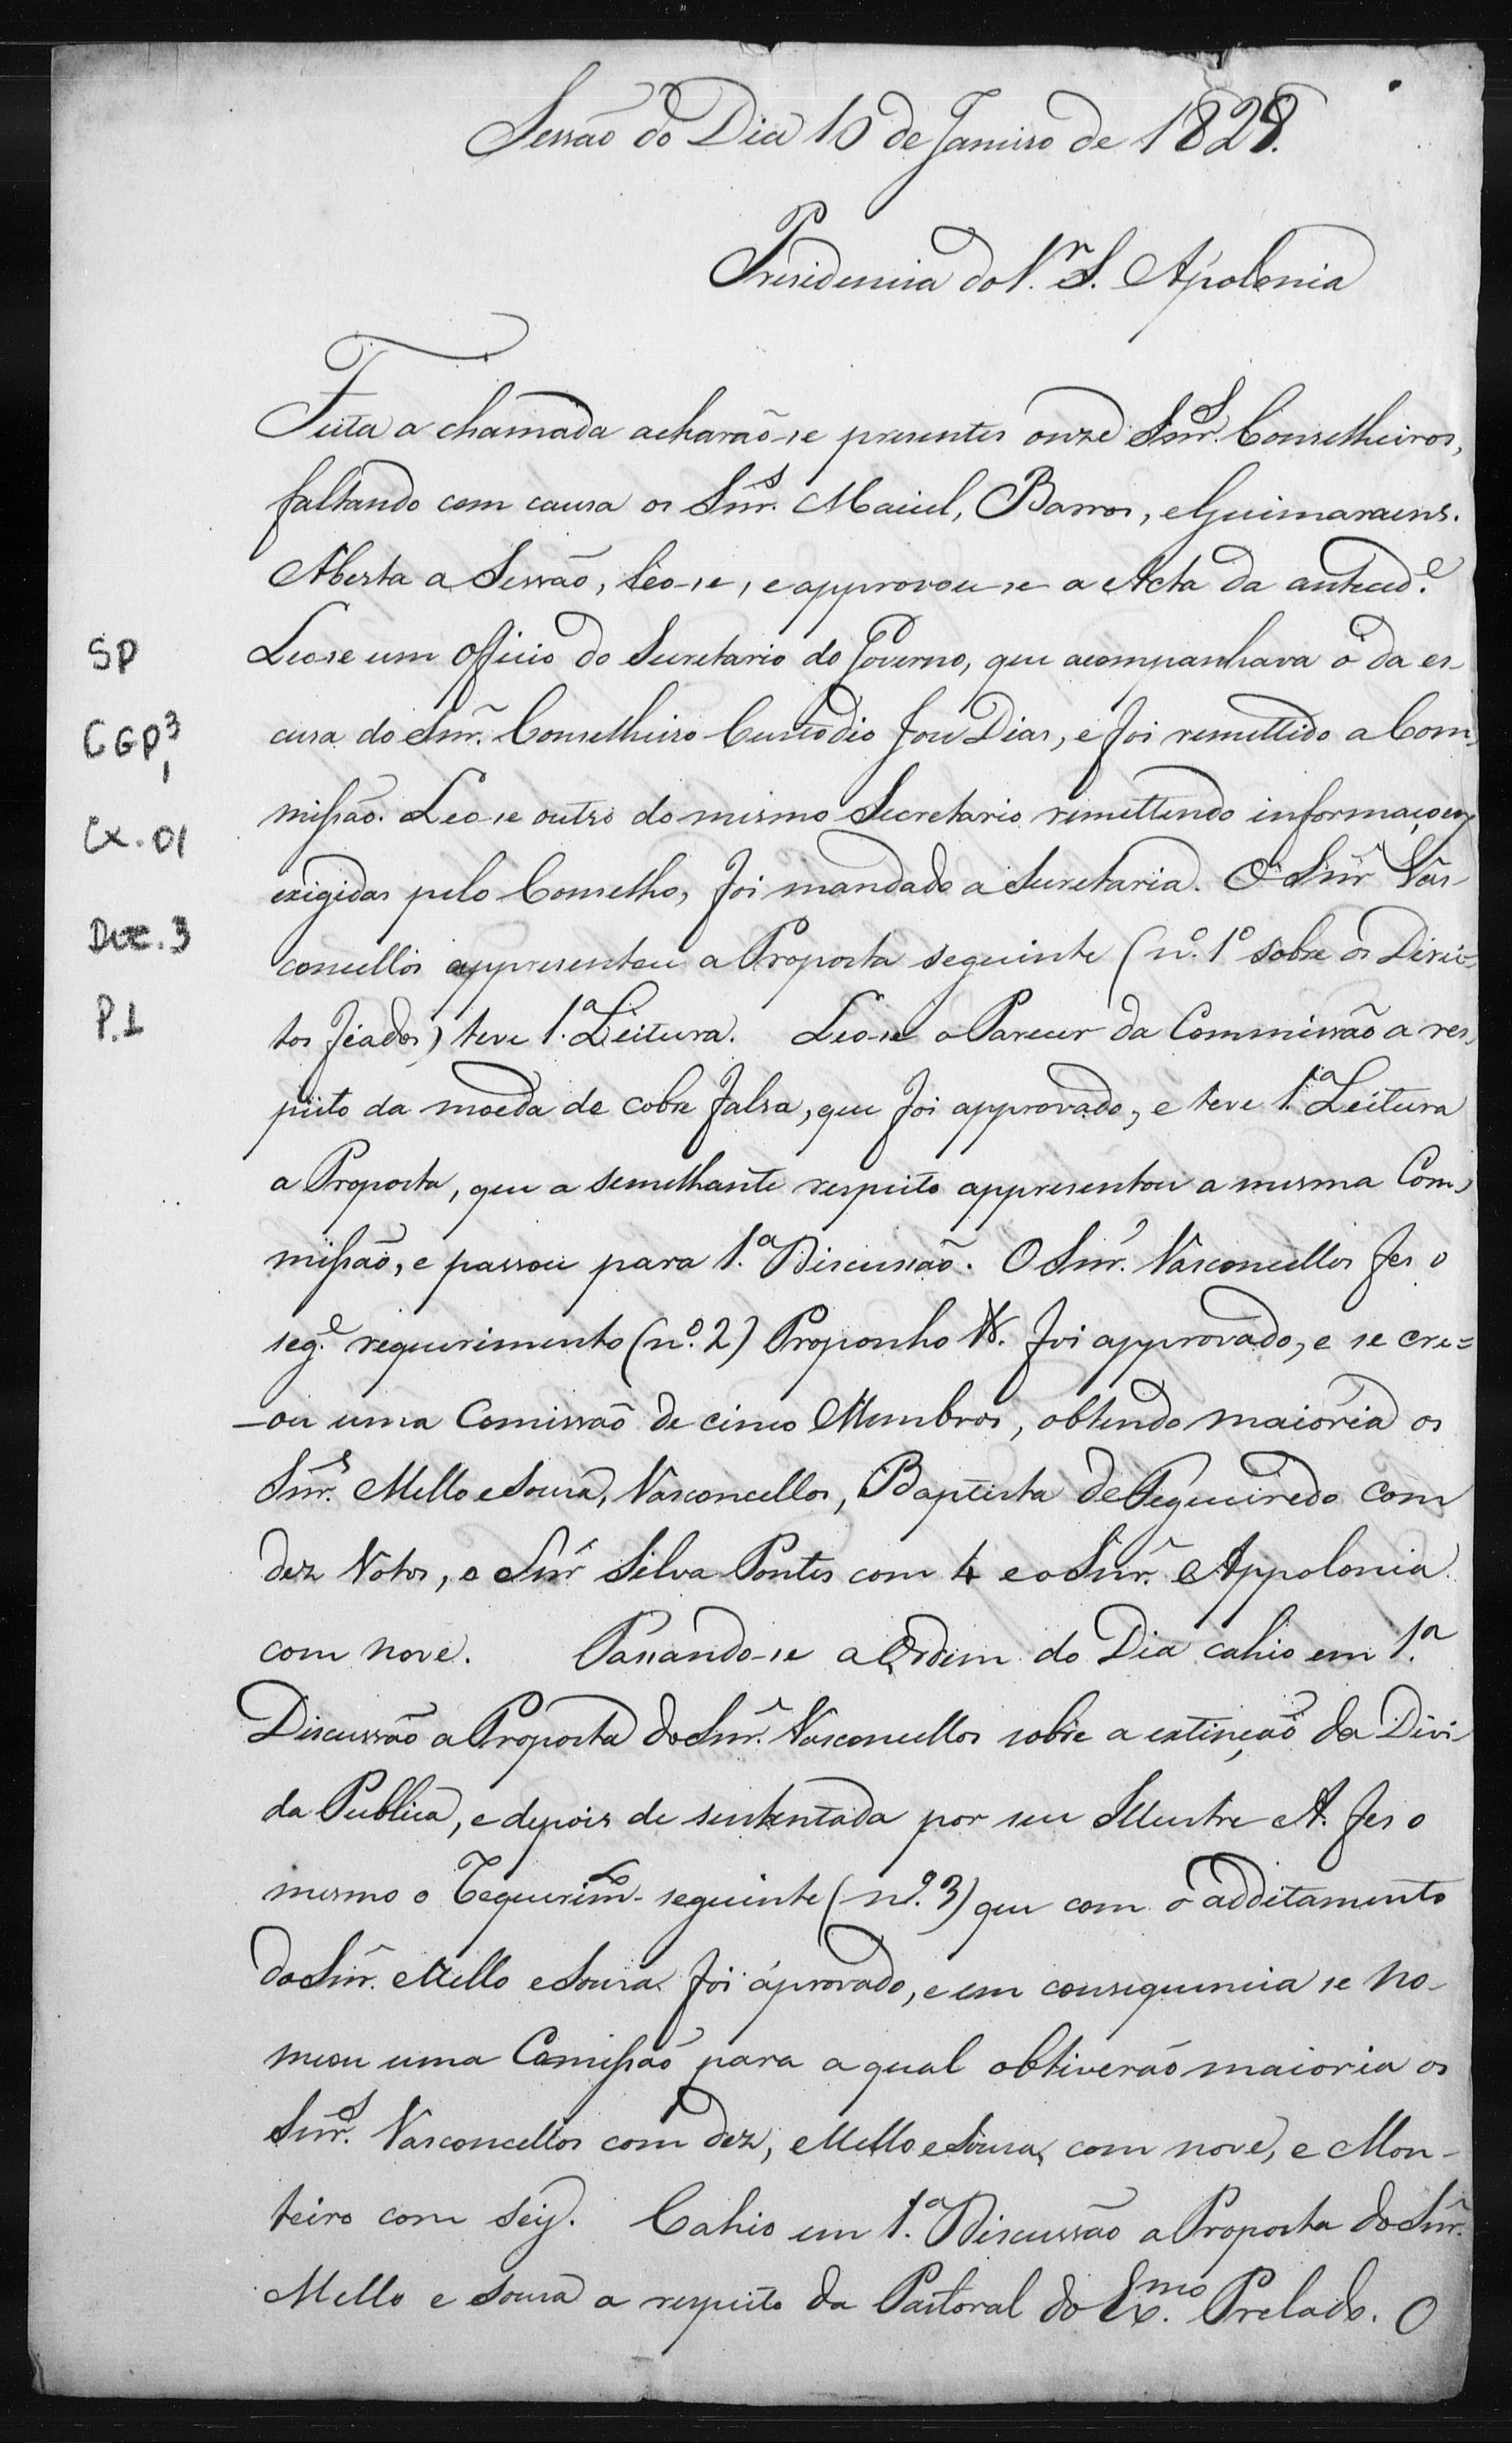 Sessão do Dia 10 de Janeiro de 1828.
Presidencia do Sr. S. Apolonia
Feita a chamada acharão-se presentes onze Snr.s Conselheiros,
faltando com causa os Snr.s Maciel, Barros, e Guimaraens.
Aberta a Sessão, leo-se, e approvou-se a Acta da anteced.e
Leo-se um Officio do Secretario do Governo, que acompanhava o da es-
SP
cusa do Snr. Conselheiro Custodio Jose Dias, e foi remettido a Com-
CGP3,1
missão. Leo-se outro do mesmo Secretario remettendo informaçoens
Cx. 01
exigidas pelo Conselho, foi mandado a Secretaria. O Snr Vas-
Doc. 3
concellos appresentou a Proposta seguinte (n.º 1º sobre os Direi-
P.1
tos ) teve 1.a Leitura. Leo-se o Parecer da Commissão a res-
peito da moeda de cobre falsa, que foi approvado, e teve 1.a Leitura
a Proposta, que a semelhante respeito appresentou a mesma Com-
missão, e passou para 1.a Discussão. O Snr. Vasconcellos fes o
seg.e requerimento (n.º 2) Proponho &. foi approvado, e se cre=
-ou uma Comissão de cinco Membros, obtendo maioria os
Snr.s Mello e Souza, Vasconcellos, Baptista de Fegueiredo com
dez Votos, o Snr Silva Pontes com 4 e o Snr. Appolonia
com nove. Passando-se a Ordem do Dia cahio em 1.a
Discussão a Proposta do Snr. Vasconcellos sobre a extinção da Divi-
da Publica, e depois de sustentada por seu Illustre A. fes o
mesmo o Requerim.to seguinte (n.º 3) que com o additamento
do Snr. Mello e Souza foi aprovado, e em consequencia se no-
meou uma Comissão para a qual obtiverão maioria os
Snr.s Vasconcellos com dez, Mello e Sousa, com nove, e Mon-
teiro com seis. Cahio em 1.a Discussão a Proposta do Snr.
Mello e Souza a respeito da Pastoral do Ex.mo Prelado. O